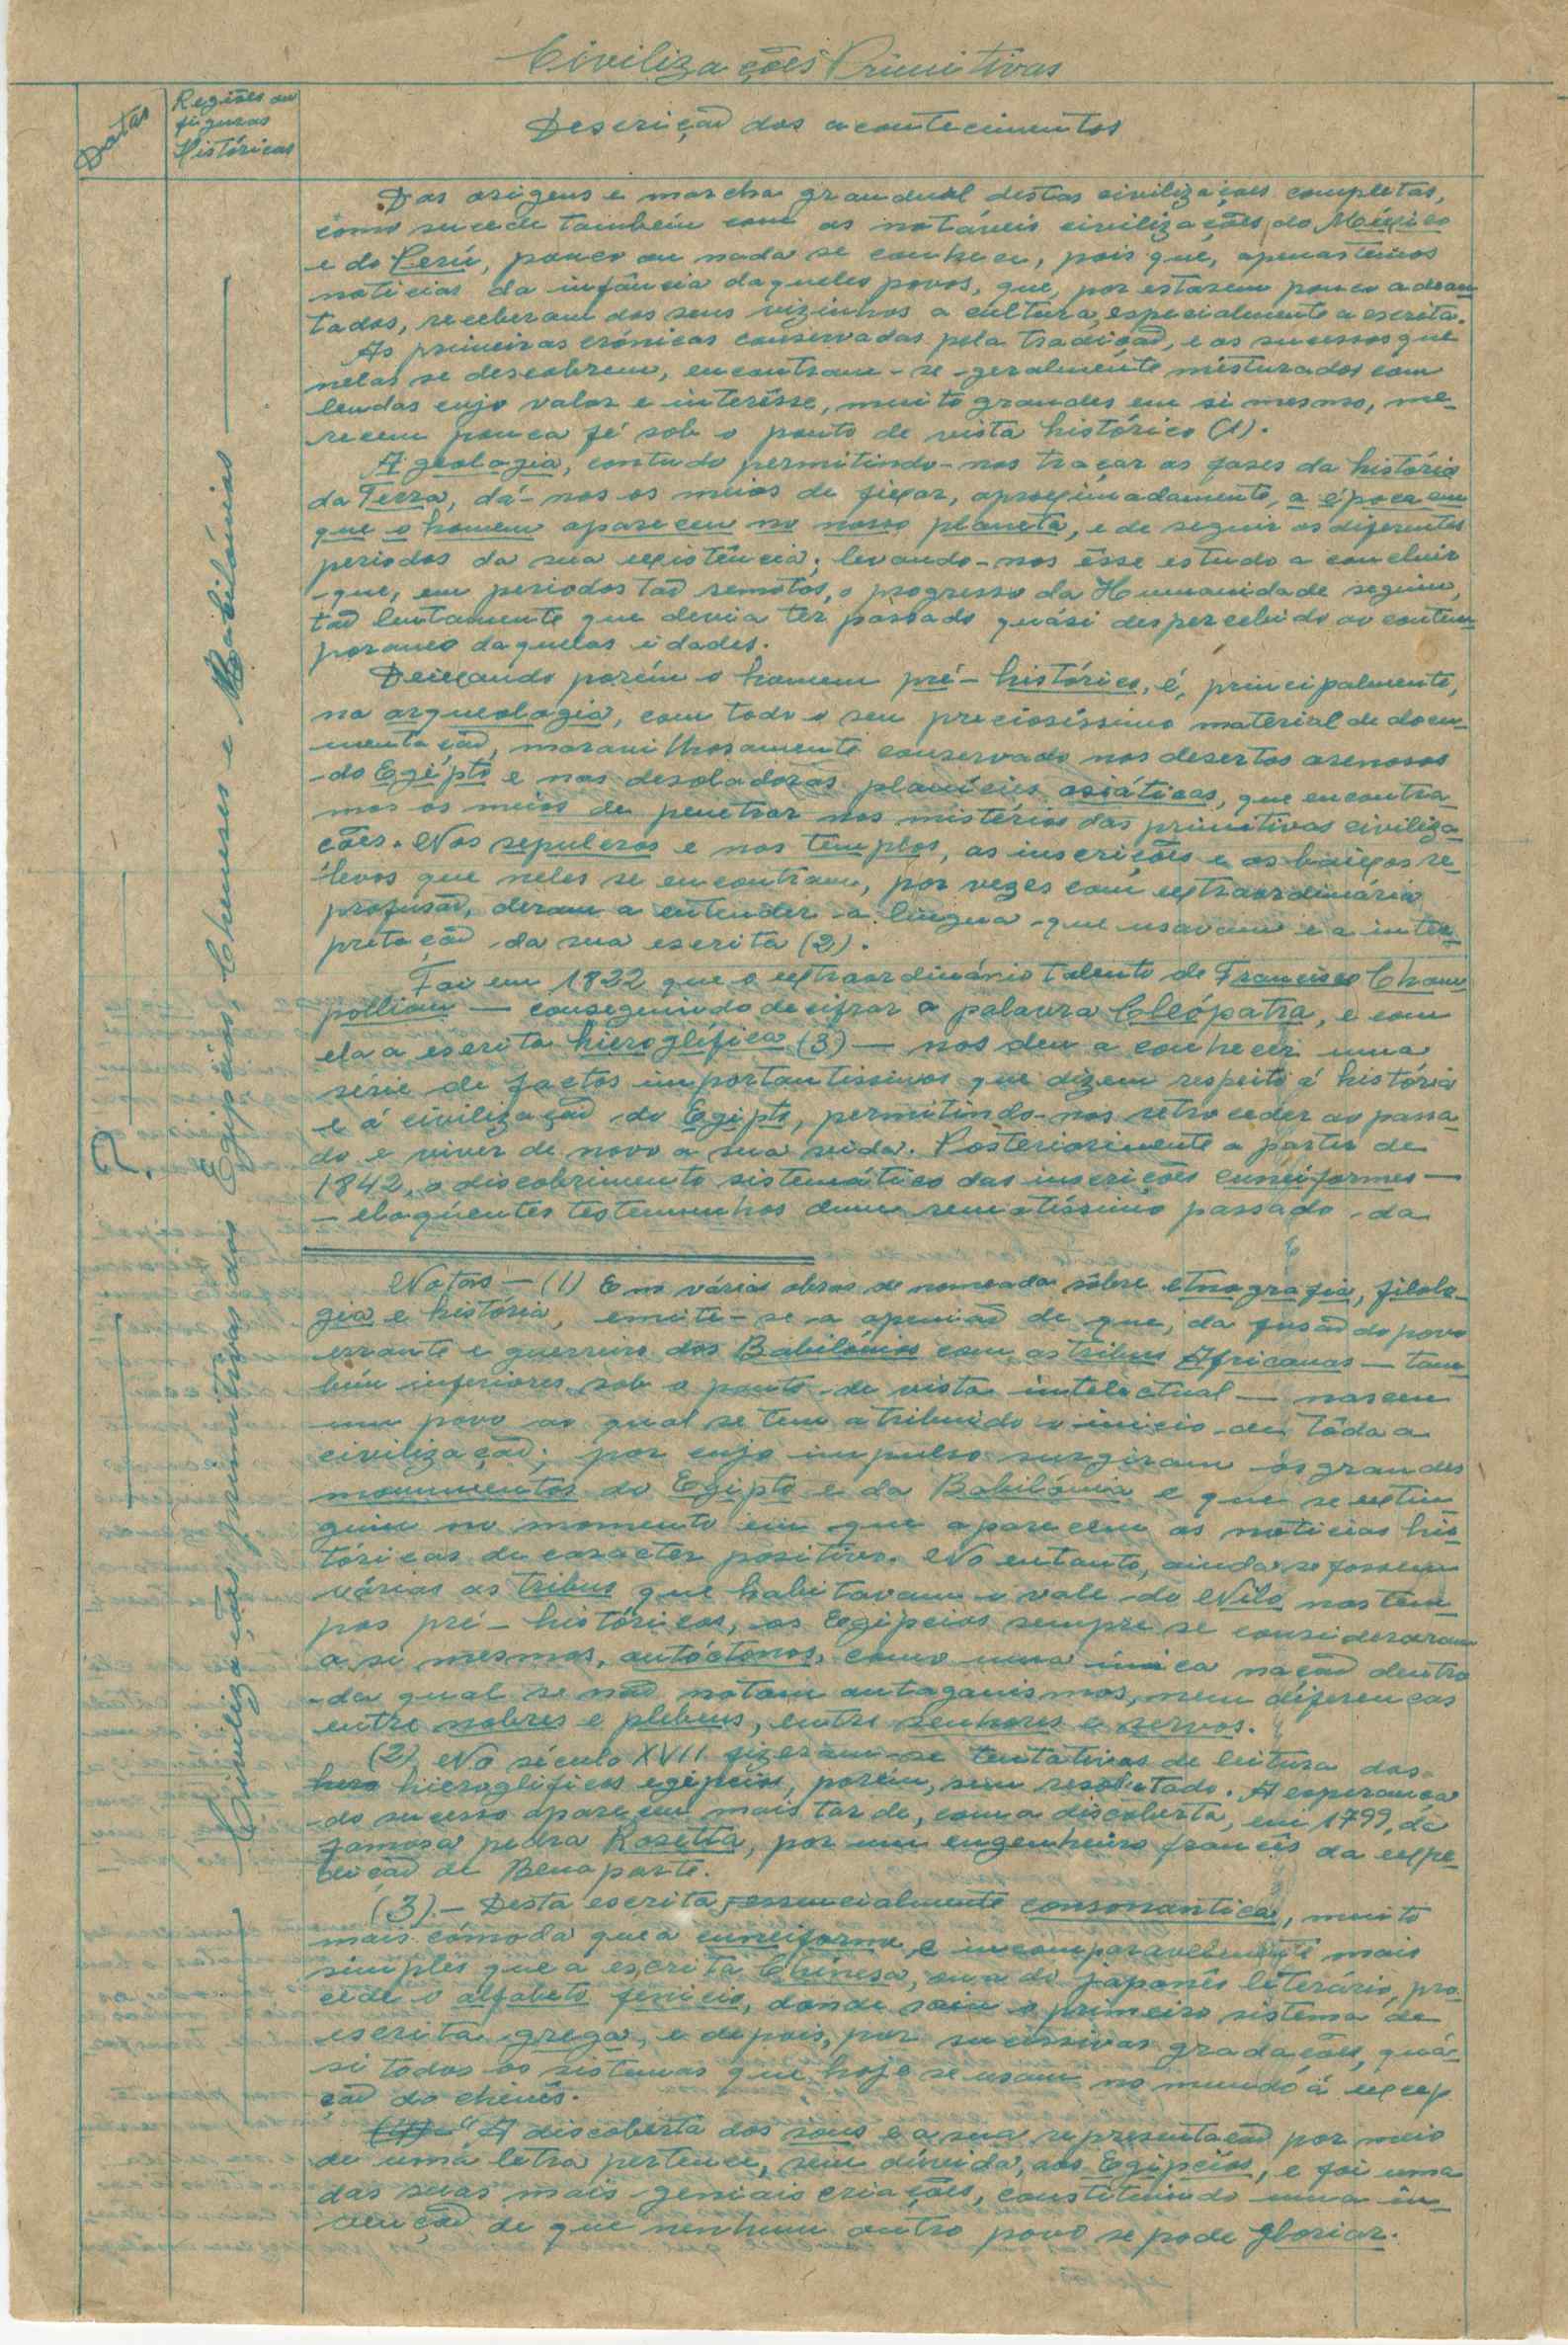 Civilizações Primitivas
Datas
Regiões ou
figuras
Históricas
Descrição dos acontecimentos
Civilizações primitivas dos Egipcios, Chineses e Babilónios
Das origens e marcha graudual destas civilizações completas,
como sucede também com as notáveis civilizações do México
e do Perú, pouco ou nada se conhece, pois que, apenas temos
noticias da infância daqueles povos, que, por estarem pouco adean
tados, receberam dos seus vizinhos a cultura, especialmente a escrita.
As primeiras crónicas conservadas pela tradição, e os sucessos que
nelas se descobrem, encontram-se geralmente misturados com
lendas cujo valor e interêsse, muito grandes em si mesmo, me-
recem pouca fé sob o ponto de vista histórico (1).
A geologia, contudo permitindo-nos traçar as fases da história
da Terra, dá-nos os meios de fixar, aproximadamente, a época em
que o homem apareceu no nosso planeta, e de seguir os diferentes
periodos da sua existência; levando-nos êsse estudo a concluir
que, em periodos tão remotos, o progresso da Humanidade seguiu,
tão lentamente que devia ter passado quási despercebido ao contem
poraneo daquelas idades.
Deixando porém o homem pré-histórico, é, principalmente,
na arqueologia, com todo o seu preciosíssimo material de docu-
mentação, maravilhosamente conservado nos desertos arenosos
do Egipto e nas desoladoras planícies asiáticas, que encontra
mos os meios de penetrar nos mistérios das primitivas civiliza-
ções. Nos sepulcros e nos templos, as inscrições e os baixos re-
levos que neles se encontram, por vezes com extraordinária
profusão, deram a entender a lingua que usavam e a inter-
pretação da sua escrita (2).
Foi em 1822 que o extraordinário talento de Francisco Cham
pollion — conseguindo decifrar a palavra Cleópatra, e com
ela a escrita hieroglífica (3) — nos deu a conhecer uma
série de factos importantissimos que dizem respeito á história
e á civilização do Egipto, permitindo-nos retroceder ao passa-
do e viver de novo a sua vida. Posteriormente a partir de
1842, o discobrimento sistemático das inscrições cuneiformes —
— eloqüentes testemunhos dum remotíssimo passado da
Notas — (1) Em várias obras de nomeada sôbre etnografia, filolo-
gia e história, emite-se a openião de que, da fusão do povo
errante e guerreiro dos Babilónios com as tribus Africanas — tam
bém inferiores sob o ponto de vista intelectual — nasceu
um povo ao qual se tem atribuido o inicio de tôda a
civilização; por cujo impulso surgiram os grandes
monumentos do Egipto e da Babilónia e que se extin
guiu no momento em que aparecem as noticias his
tóricas de caracter positivo. No entanto, ainda se fossem
várias as tribus que habitavam o vale do Nilo nos tem-
pos pré-históricos, os Egipcios sempre se consideraram
a si mesmos, autóctonos, como uma única nação dentro
da qual se não notam antagonismos, nem diferenças
entre nobres e plebeus, entre senhores e servos.
(2) No século XVII fizeram-se tentativas de leitura dos
hieroglíficos egipcios, porém, sem resultado. A esperança
do sucesso apareceu mais tarde, com a discoberta, em 1799, da
famosa pedra Rosetta, por um engenheiro francês da expe-
dição de Bonaparte.
(3) — Desta escrita, essencialmente consonantica, muito
mais cómoda que a cuneiforme, e incomparavelmente mais
simples que a escrita Chinesa, ou a do japonês literário, pro-
cede o alfabeto fenicio, donde saiu o primeiro sistema de
escrita grega, e depois, por sucessivas gradações, quá-
si todos os sistemas que hoje se usam no mundo á excep
ção do chinês.
(4) — "A discoberta dos sons e a sua representação por meio
de uma letra pertence, sem dúvida, aos Egipcios, e foi uma
das suas mais geniais criações, constituindo uma in-
venção de que nenhum outro povo se pode gloriar.